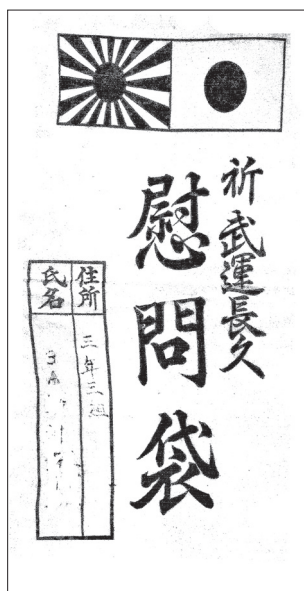 祈武運長久
慰問袋
住所
三年三組
氏名